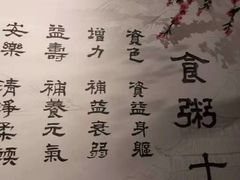 食粥十
資色 資益身軀
增力 補益衰弱
益壽 補養元氣
安樂 清淨柔軟